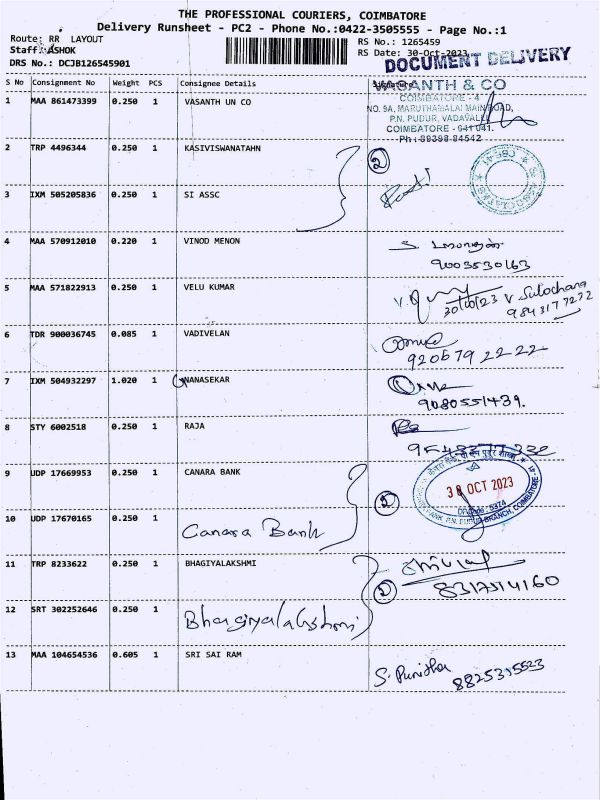 THE PROFESSIONAL COURIERS, COIMBATORE
Delivery Runsheet - PC2 - Phone No.:0422-3505555 - Page No.:1
Route: RR LAYOUT
Staff: ASHOK
DRS No.: DCJB126545901
RS No.: 1265459
RS Date: 30-Oct-2023
DOCUMENT DELIVERY
S No Consignment No Weight PCS Consignee Details
VASANTH & CO
COIMBATORE - 4
NO. 9A, MARUTHAMALAI MAIN ROAD,
P.N. PUDUR, VADAVALLI
COIMBATORE - 641 041.
Ph : 89398 84542
1 MAA 861473399 0.250 1 VASANTH UN CO
2 TRP 4496344 0.250 1 KASIVISWANATAHN 2
3 IXM 505205836 0.250 1 SI ASSC
4 MAA 570912010 0.220 1 VINOD MENON
9003530163
5 MAA 571822913 0.250 1 VELU KUMAR
30/10/23 V Sulochana
9843177272
6 TDR 900036745 0.085 1 VADIVELAN
920679 22 22
7 IXM 504932297 1.020 1 GNANASEKAR
9080551439.
8 STY 6002518 0.250 1 RAJA
9 UDP 17669953 0.250 1 CANARA BANK
30 OCT 2023
10 UDP 17670165 0.250 1 Canara Bank
11 TRP 8233622 0.250 1 BHAGIYALAKSHMI
8317514160
12 SRT 302252646 0.250 1 Bhagiyalakshmi
2
13 MAA 104654536 0.605 1 SRI SAI RAM
S. Punitha
8825395523